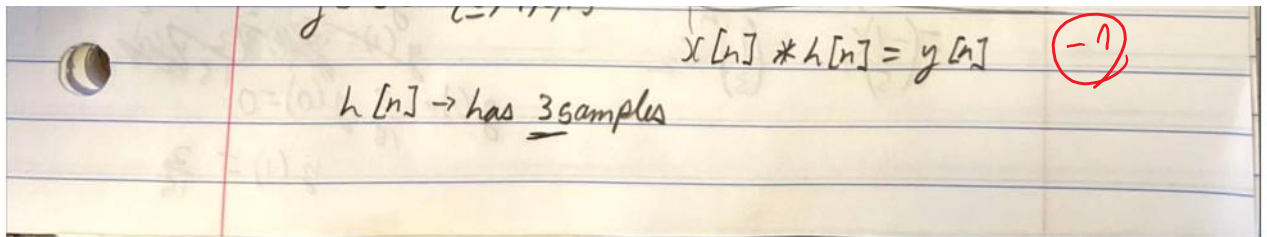 x[n] * h[n] = y[n] -1
h[n] → has 3 samples